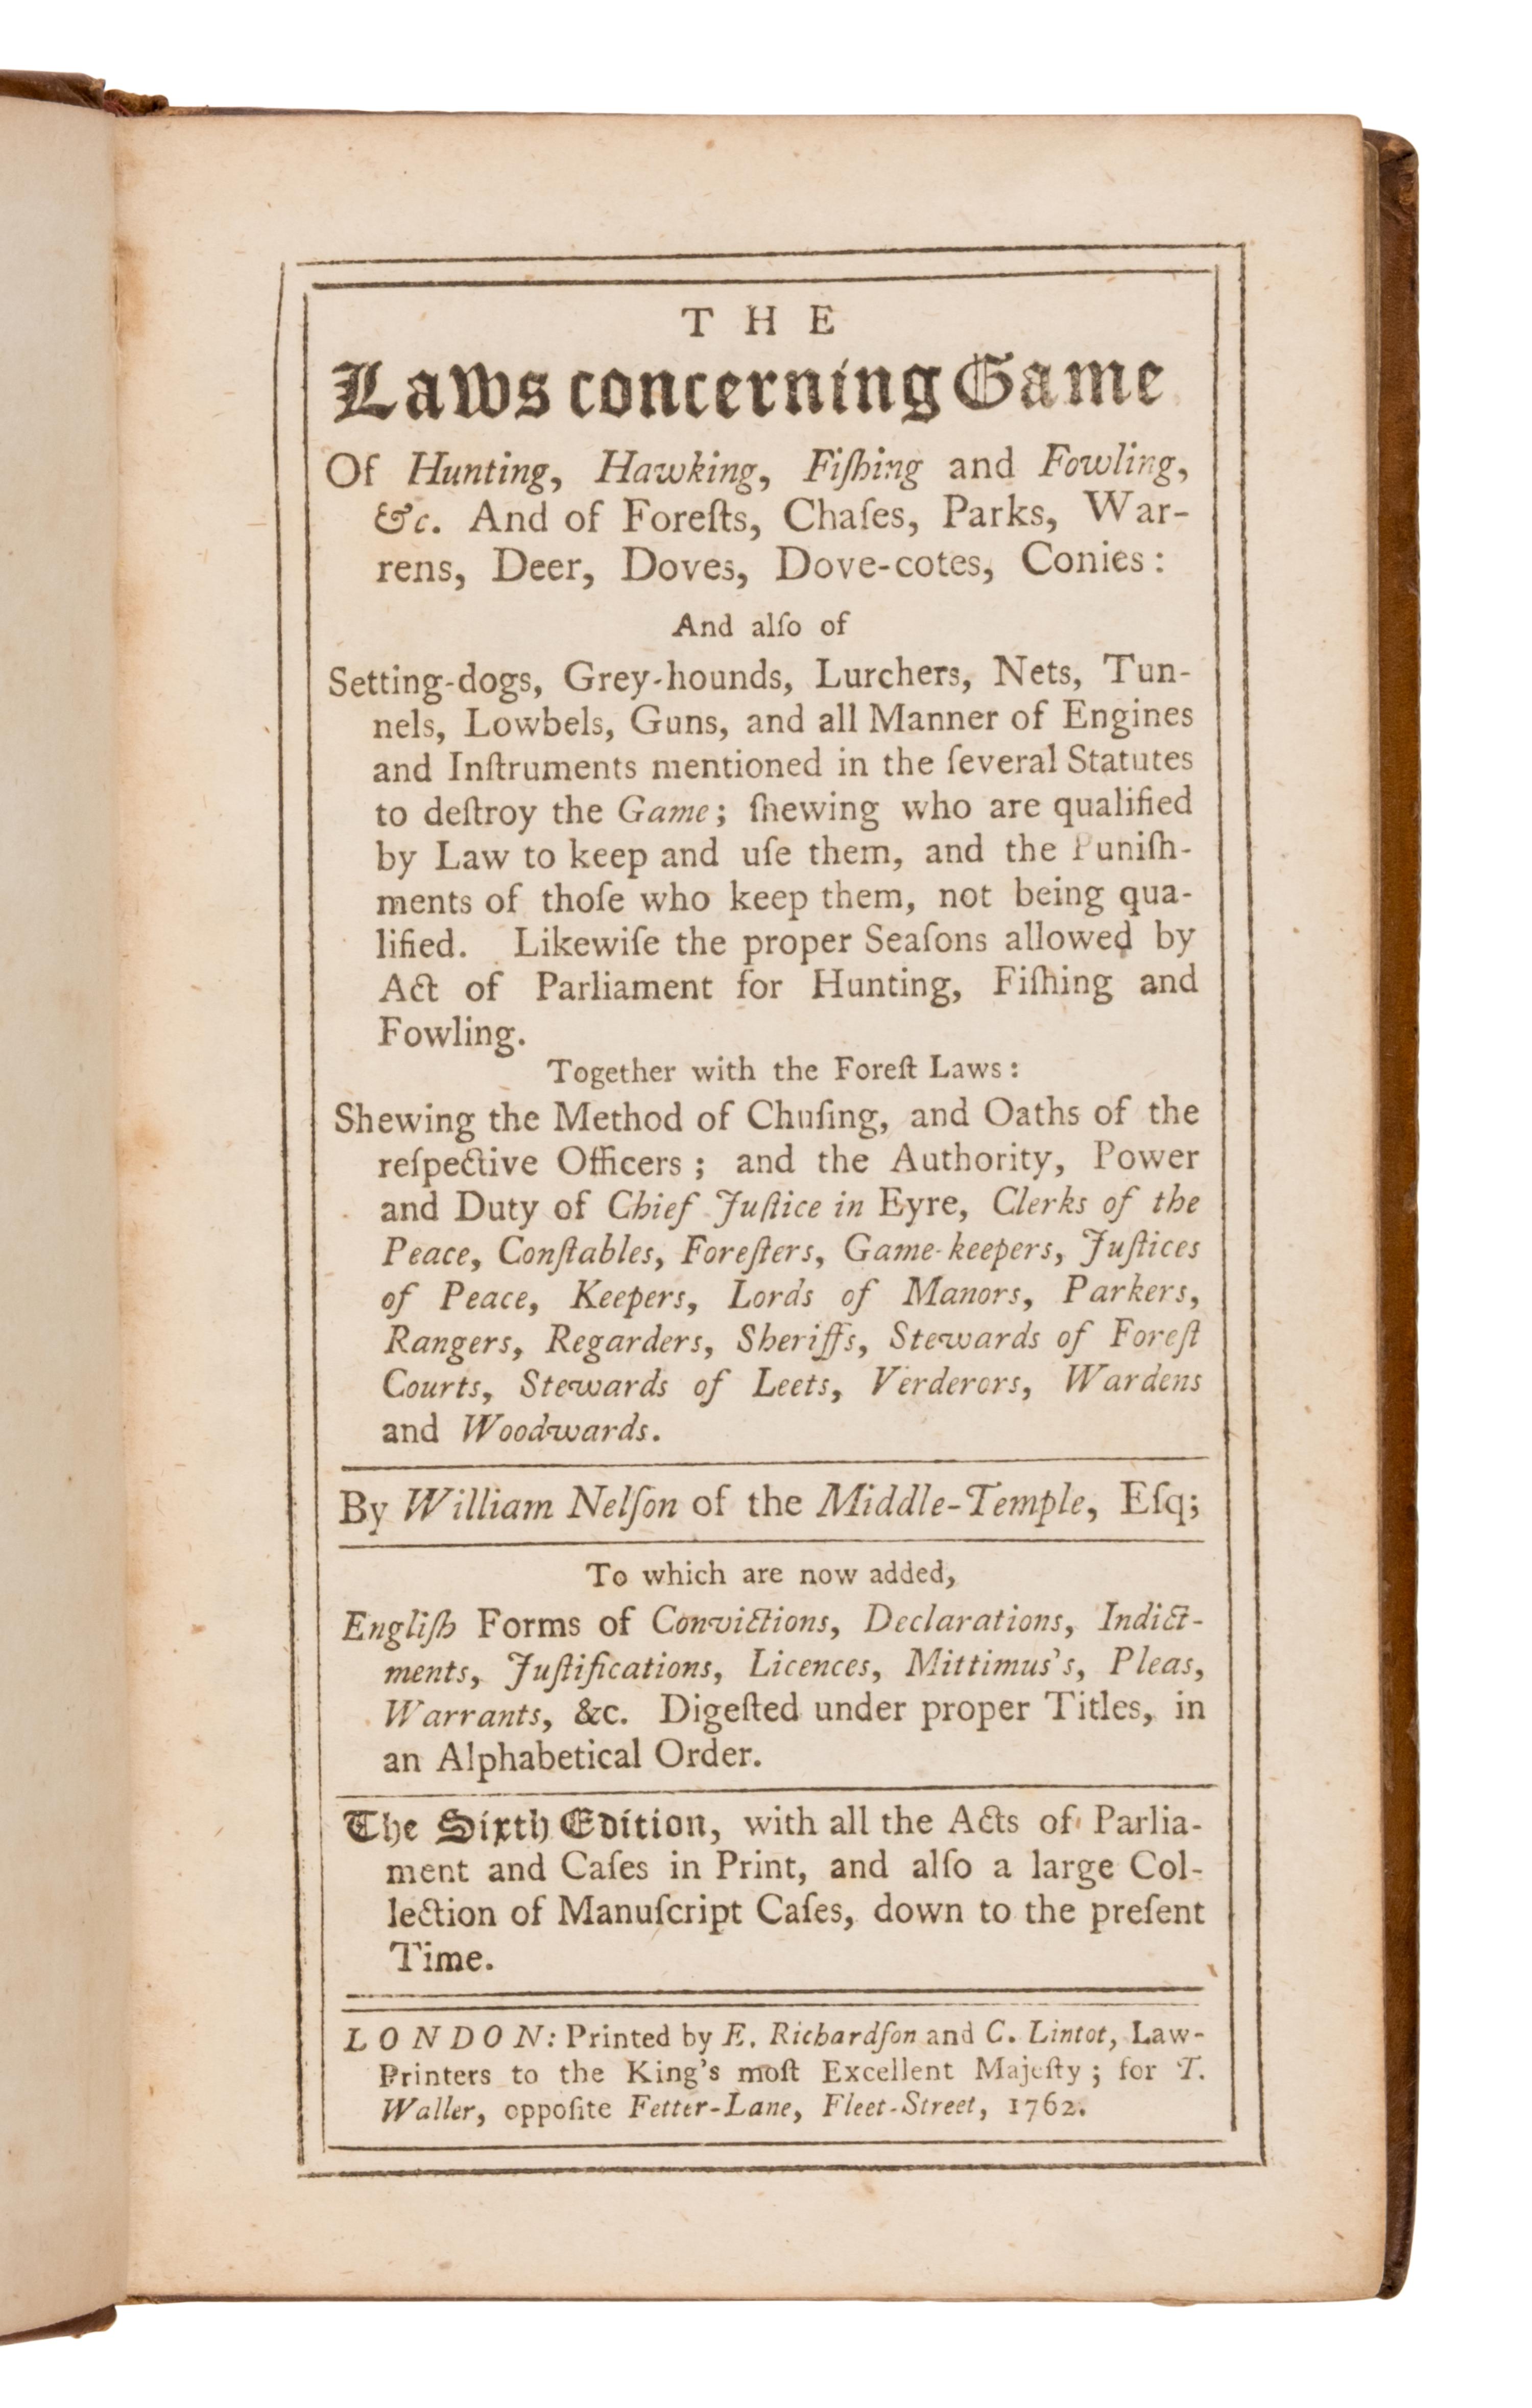 THE
Laws concerning Game
Of Hunting, Hawking, Fiſhing and Fowling,
&c. And of Foreſts, Chaſes, Parks, War-
rens, Deer, Doves, Dove-cotes, Conies:
And alſo of
Setting-dogs, Grey-hounds, Lurchers, Nets, Tun-
nels, Lowbels, Guns, and all Manner of Engines
and Inſtruments mentioned in the ſeveral Statutes
to deſtroy the Game; ſhewing who are qualified
by Law to keep and uſe them, and the Puniſh-
ments of thoſe who keep them, not being qua-
lified. Likewiſe the proper Seaſons allowed by
Act of Parliament for Hunting, Fiſhing and
Fowling.
Together with the Foreſt Laws:
Shewing the Method of Chuſing, and Oaths of the
reſpective Officers; and the Authority, Power
and Duty of Chief Juſtice in Eyre, Clerks of the
Peace, Conſtables, Foreſters, Game-keepers, Juſtices
of Peace, Keepers, Lords of Manors, Parkers,
Rangers, Regarders, Sheriffs, Stewards of Foreſt
Courts, Stewards of Leets, Verderors, Wardens
and Woodwards.
By William Nelſon of the Middle-Temple, Eſq;
To which are now added,
Engliſh Forms of Convictions, Declarations, Indict-
ments, Juſtifications, Licences, Mittimus's, Pleas,
Warrants, &c. Digeſted under proper Titles, in
an Alphabetical Order.
The Sixth Edition, with all the Acts of Parlia-
ment and Caſes in Print, and alſo a large Col-
lection of Manuſcript Caſes, down to the preſent
Time.
LONDON: Printed by E. Richardſon and C. Lintot, Law-
Printers to the King's moſt Excellent Majeſty; for T.
Waller, oppoſite Fetter-Lane, Fleet-Street, 1762.